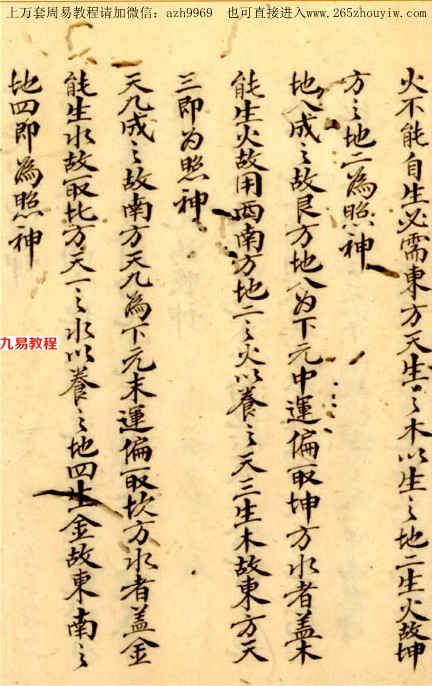 上万套周易教程请加微信：azh9969 也可直接进入www.265zhouyiw.com
火不能自生必需東方天生之木以生之地二生火故坤
方之地二為照神
地八成之故艮方地八为下元中運偏取坤方水者蓋木
能生火故用西南方地二之火以養之天三生木故東方天
三即为照神
天九成之故南方天九為下元末運偏取坎方水者盖金
能生水故取北方天一之水以養之地四生金故東南之
地四即為照神
九易教程